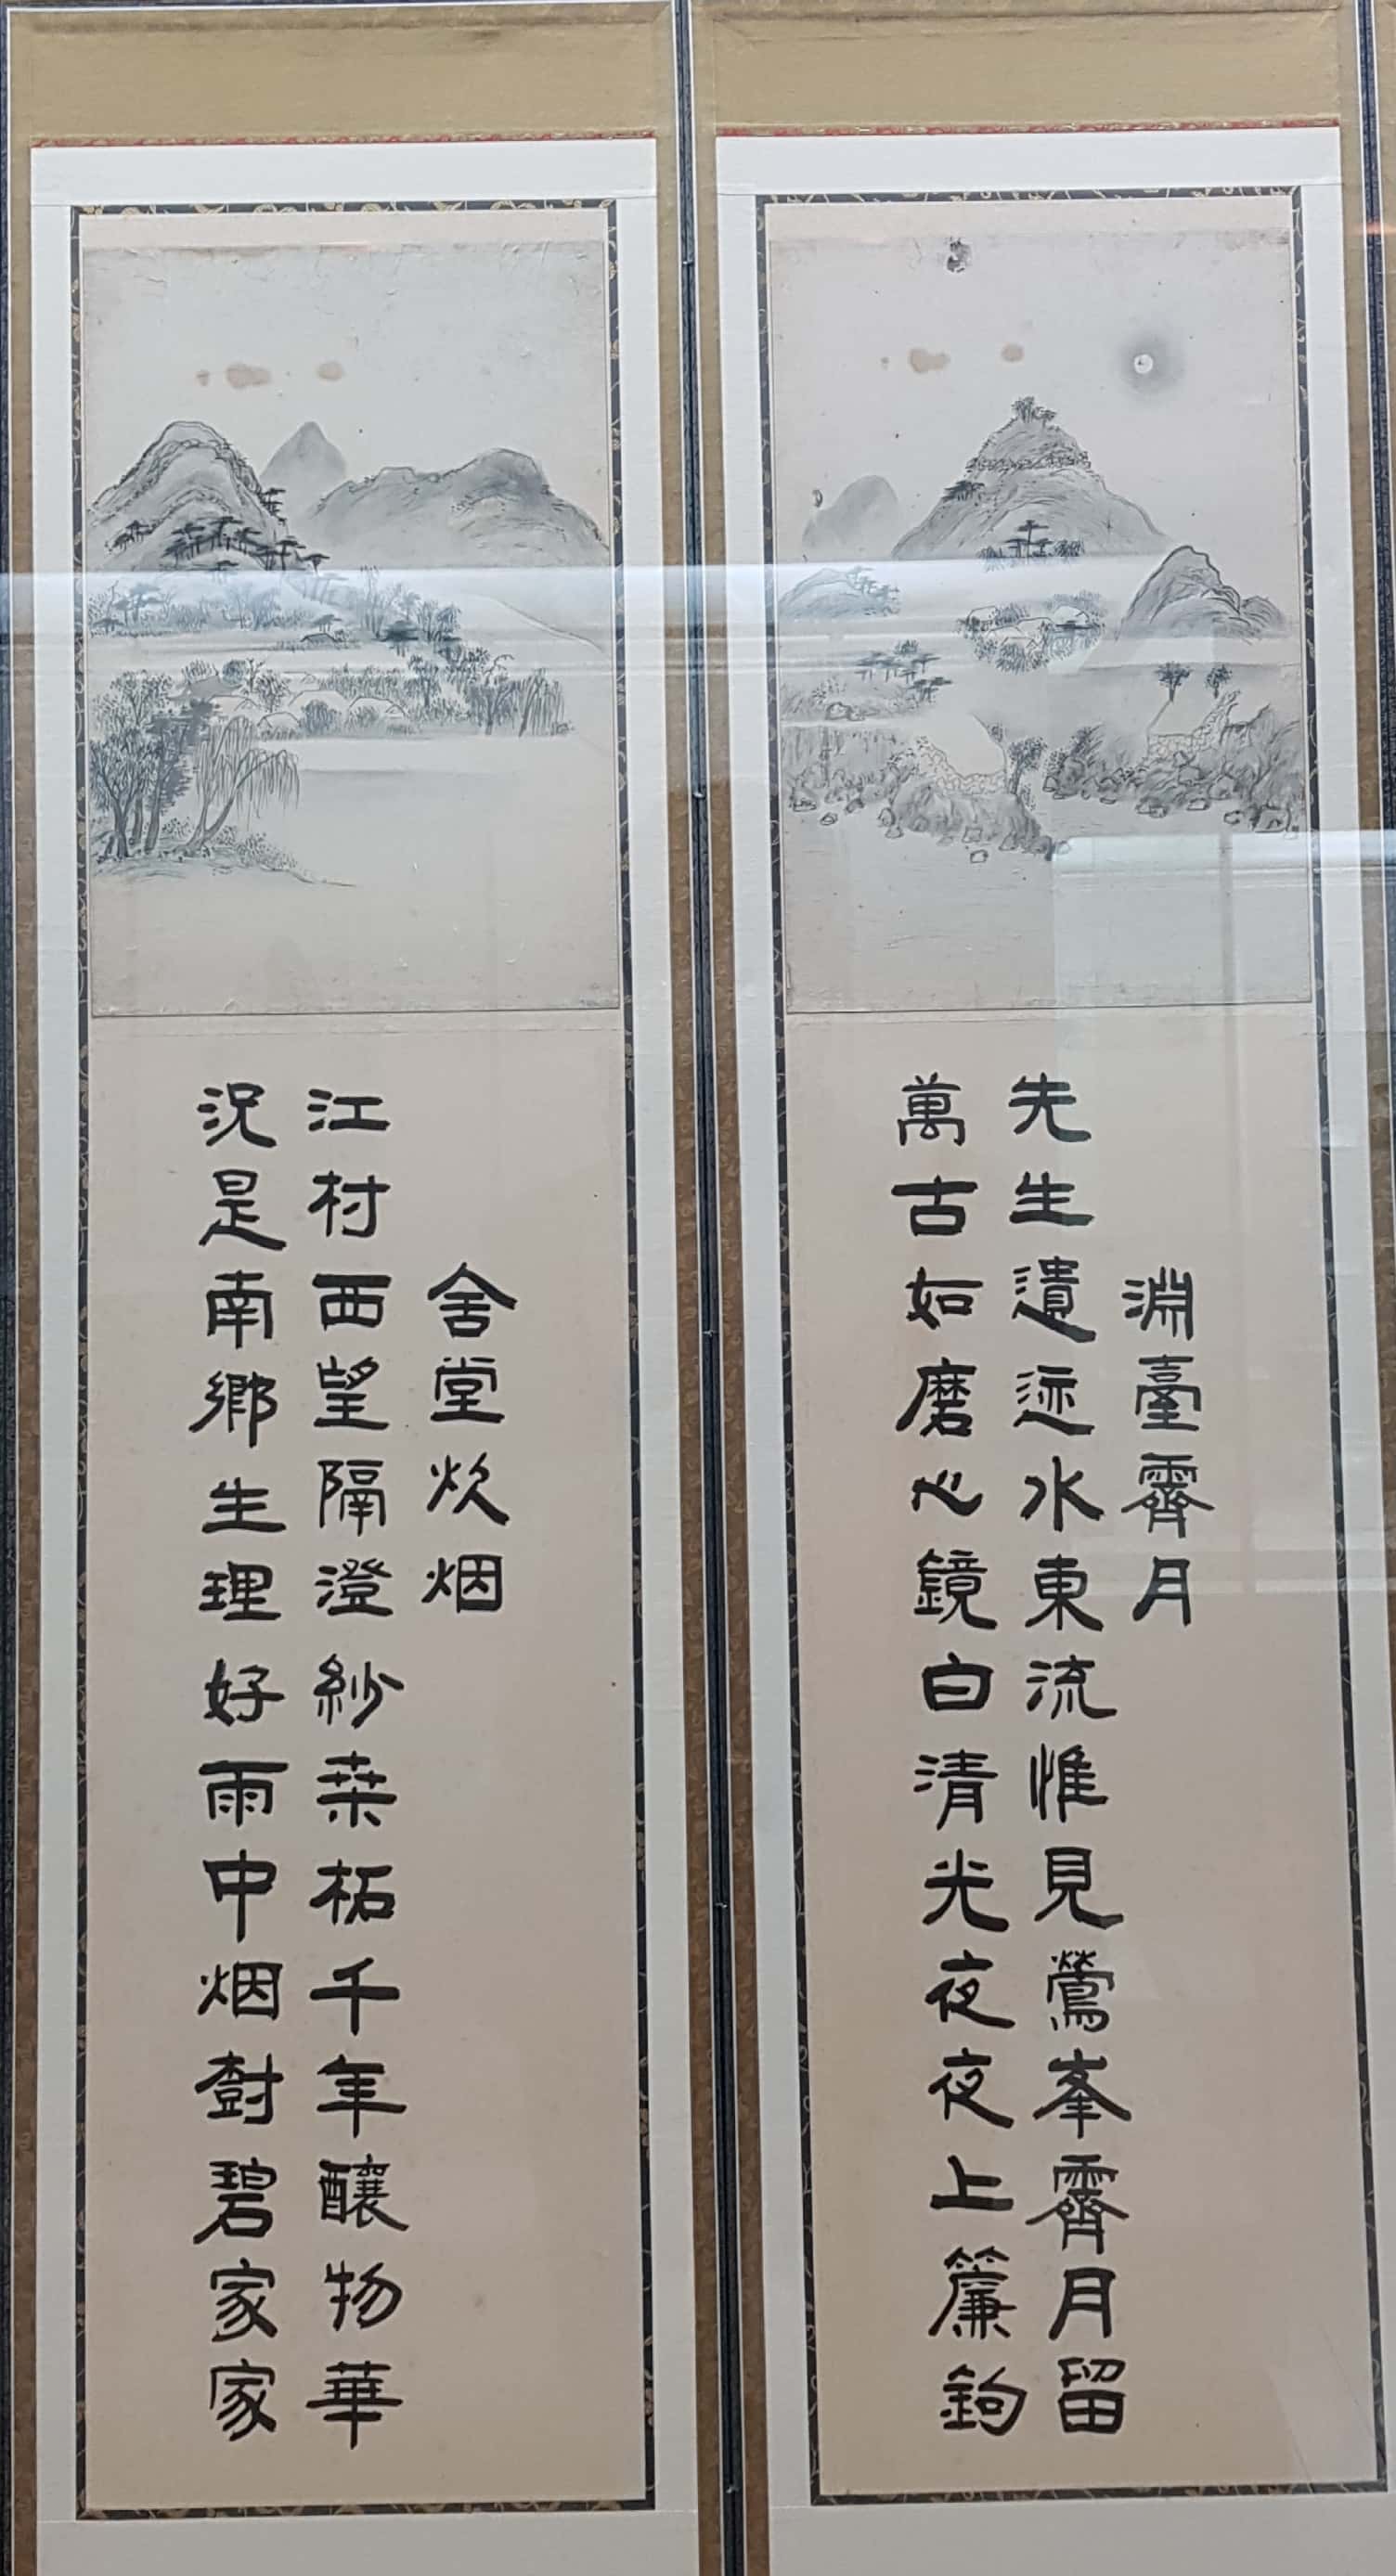 淵臺霽月
先生遺迹水東流惟見鶯峯霽月留
萬古如磨心鏡白清光夜夜上簾鉤
舍堂炊烟
江村西望隔澄紗桒柘千年釀物華
況是南鄉生理好雨中烟樹碧家家